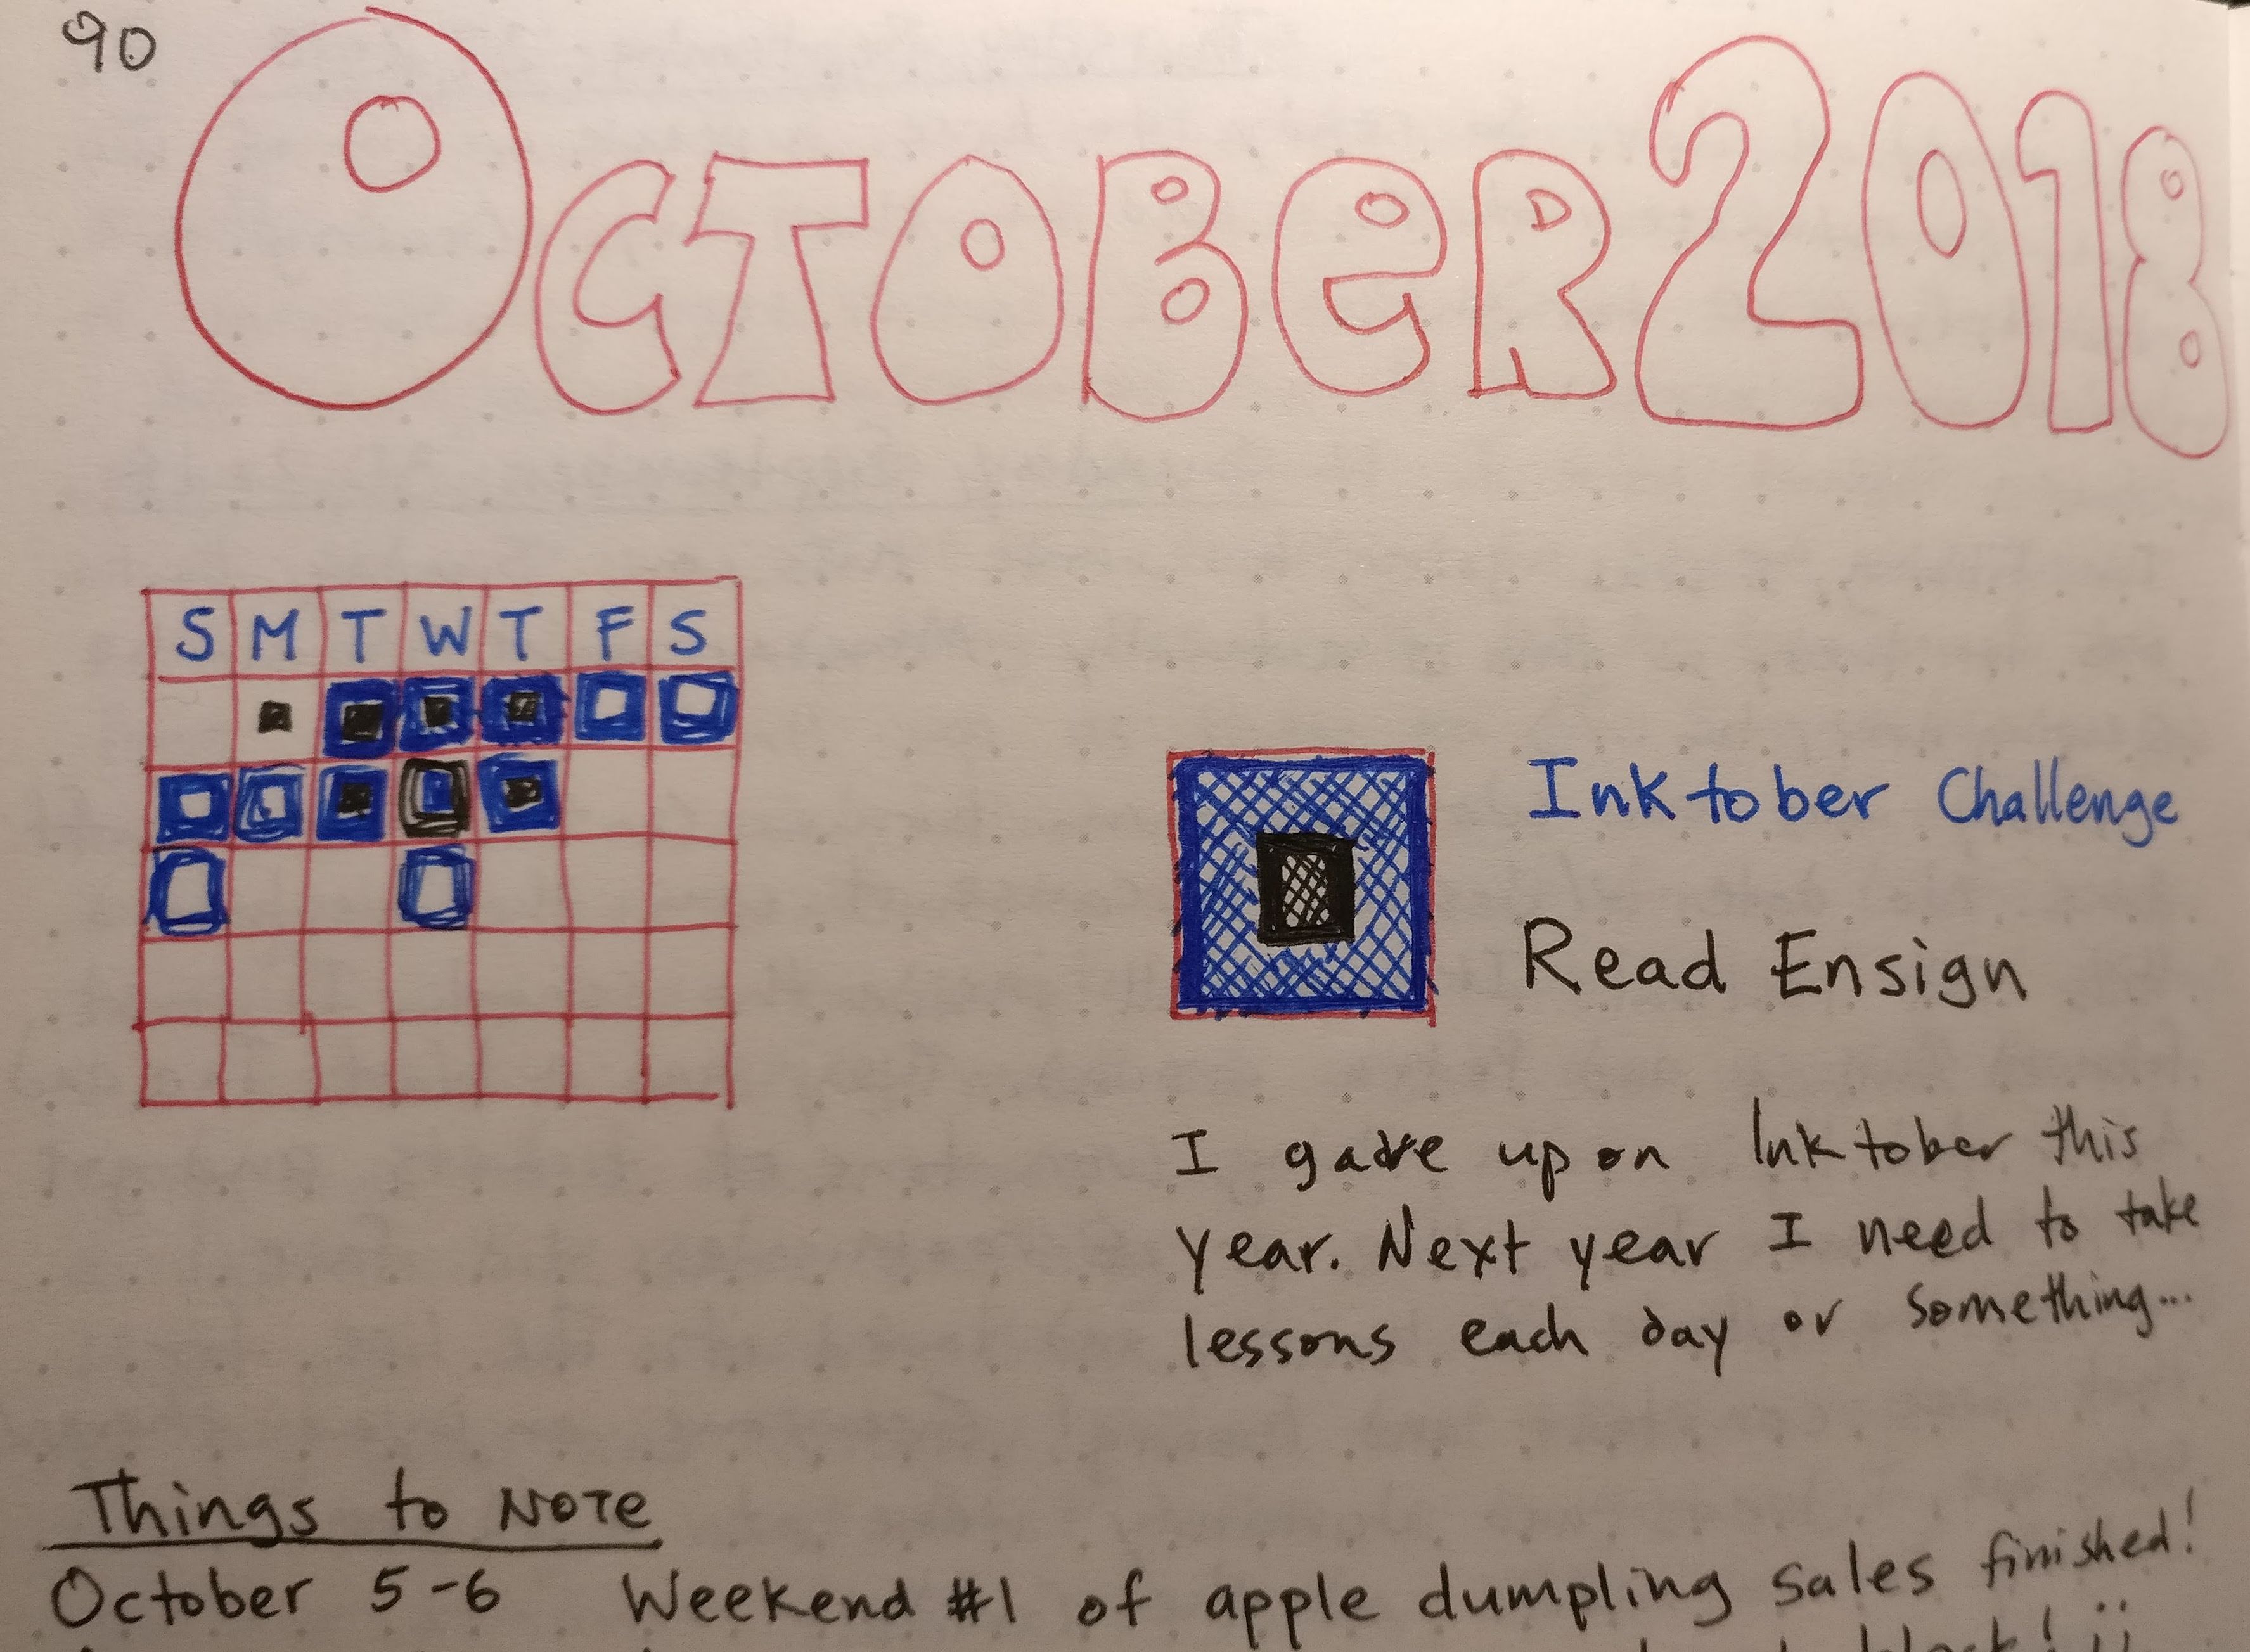 90
OCTOBeR 2018
S M T W T F S
Inktober Challenge
Read Ensign
I gave up on Inktober this
year. Next year I need to take
lessons each day or something...
Things to NOTe
October 5-6 Weekend #1 of apple dumpling sales finished!